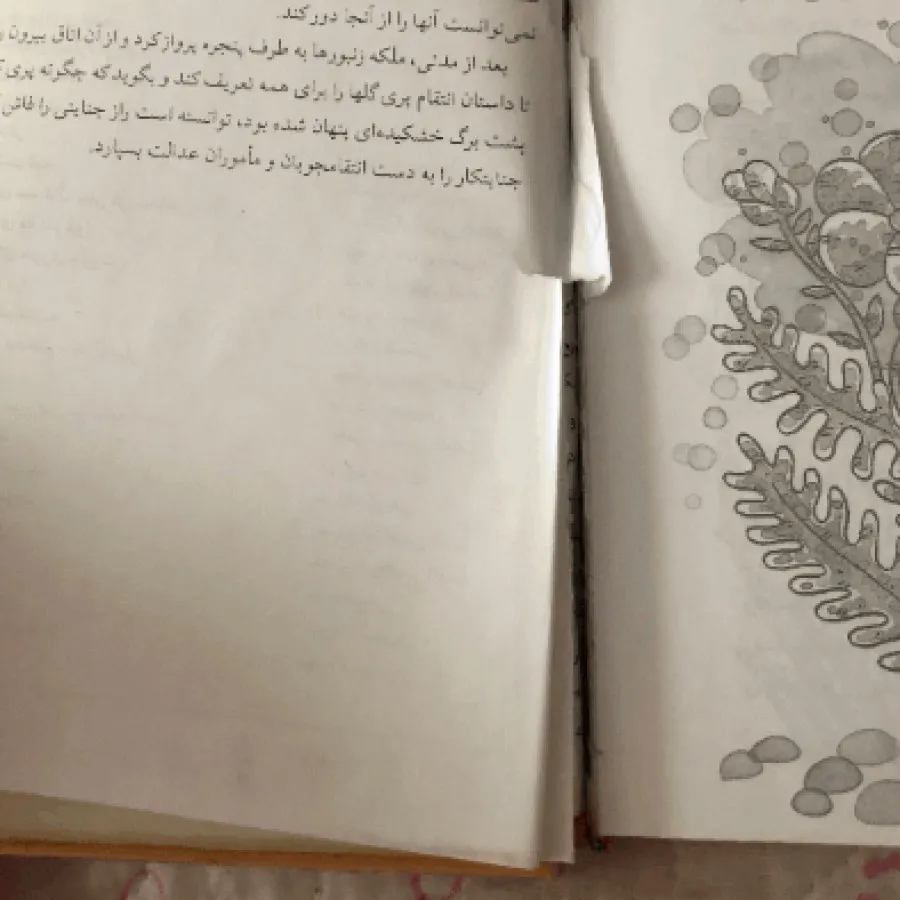 نمی‌توانست آنها را از آنجا دور کند.
بعد از مدتی، ملکه زنبورها به طرف پنجره پرواز کرد و از آن اتاق بیرون
تا داستان انتقام پری گلها را برای همه تعریف کند و بگوید که چگونه پری
پشت برگ خشکیده‌ای پنهان شده بود، توانسته است راز جنایتی را فاش
جنایتکار را به دست انتقامجویان و مأموران عدالت بسپارد.